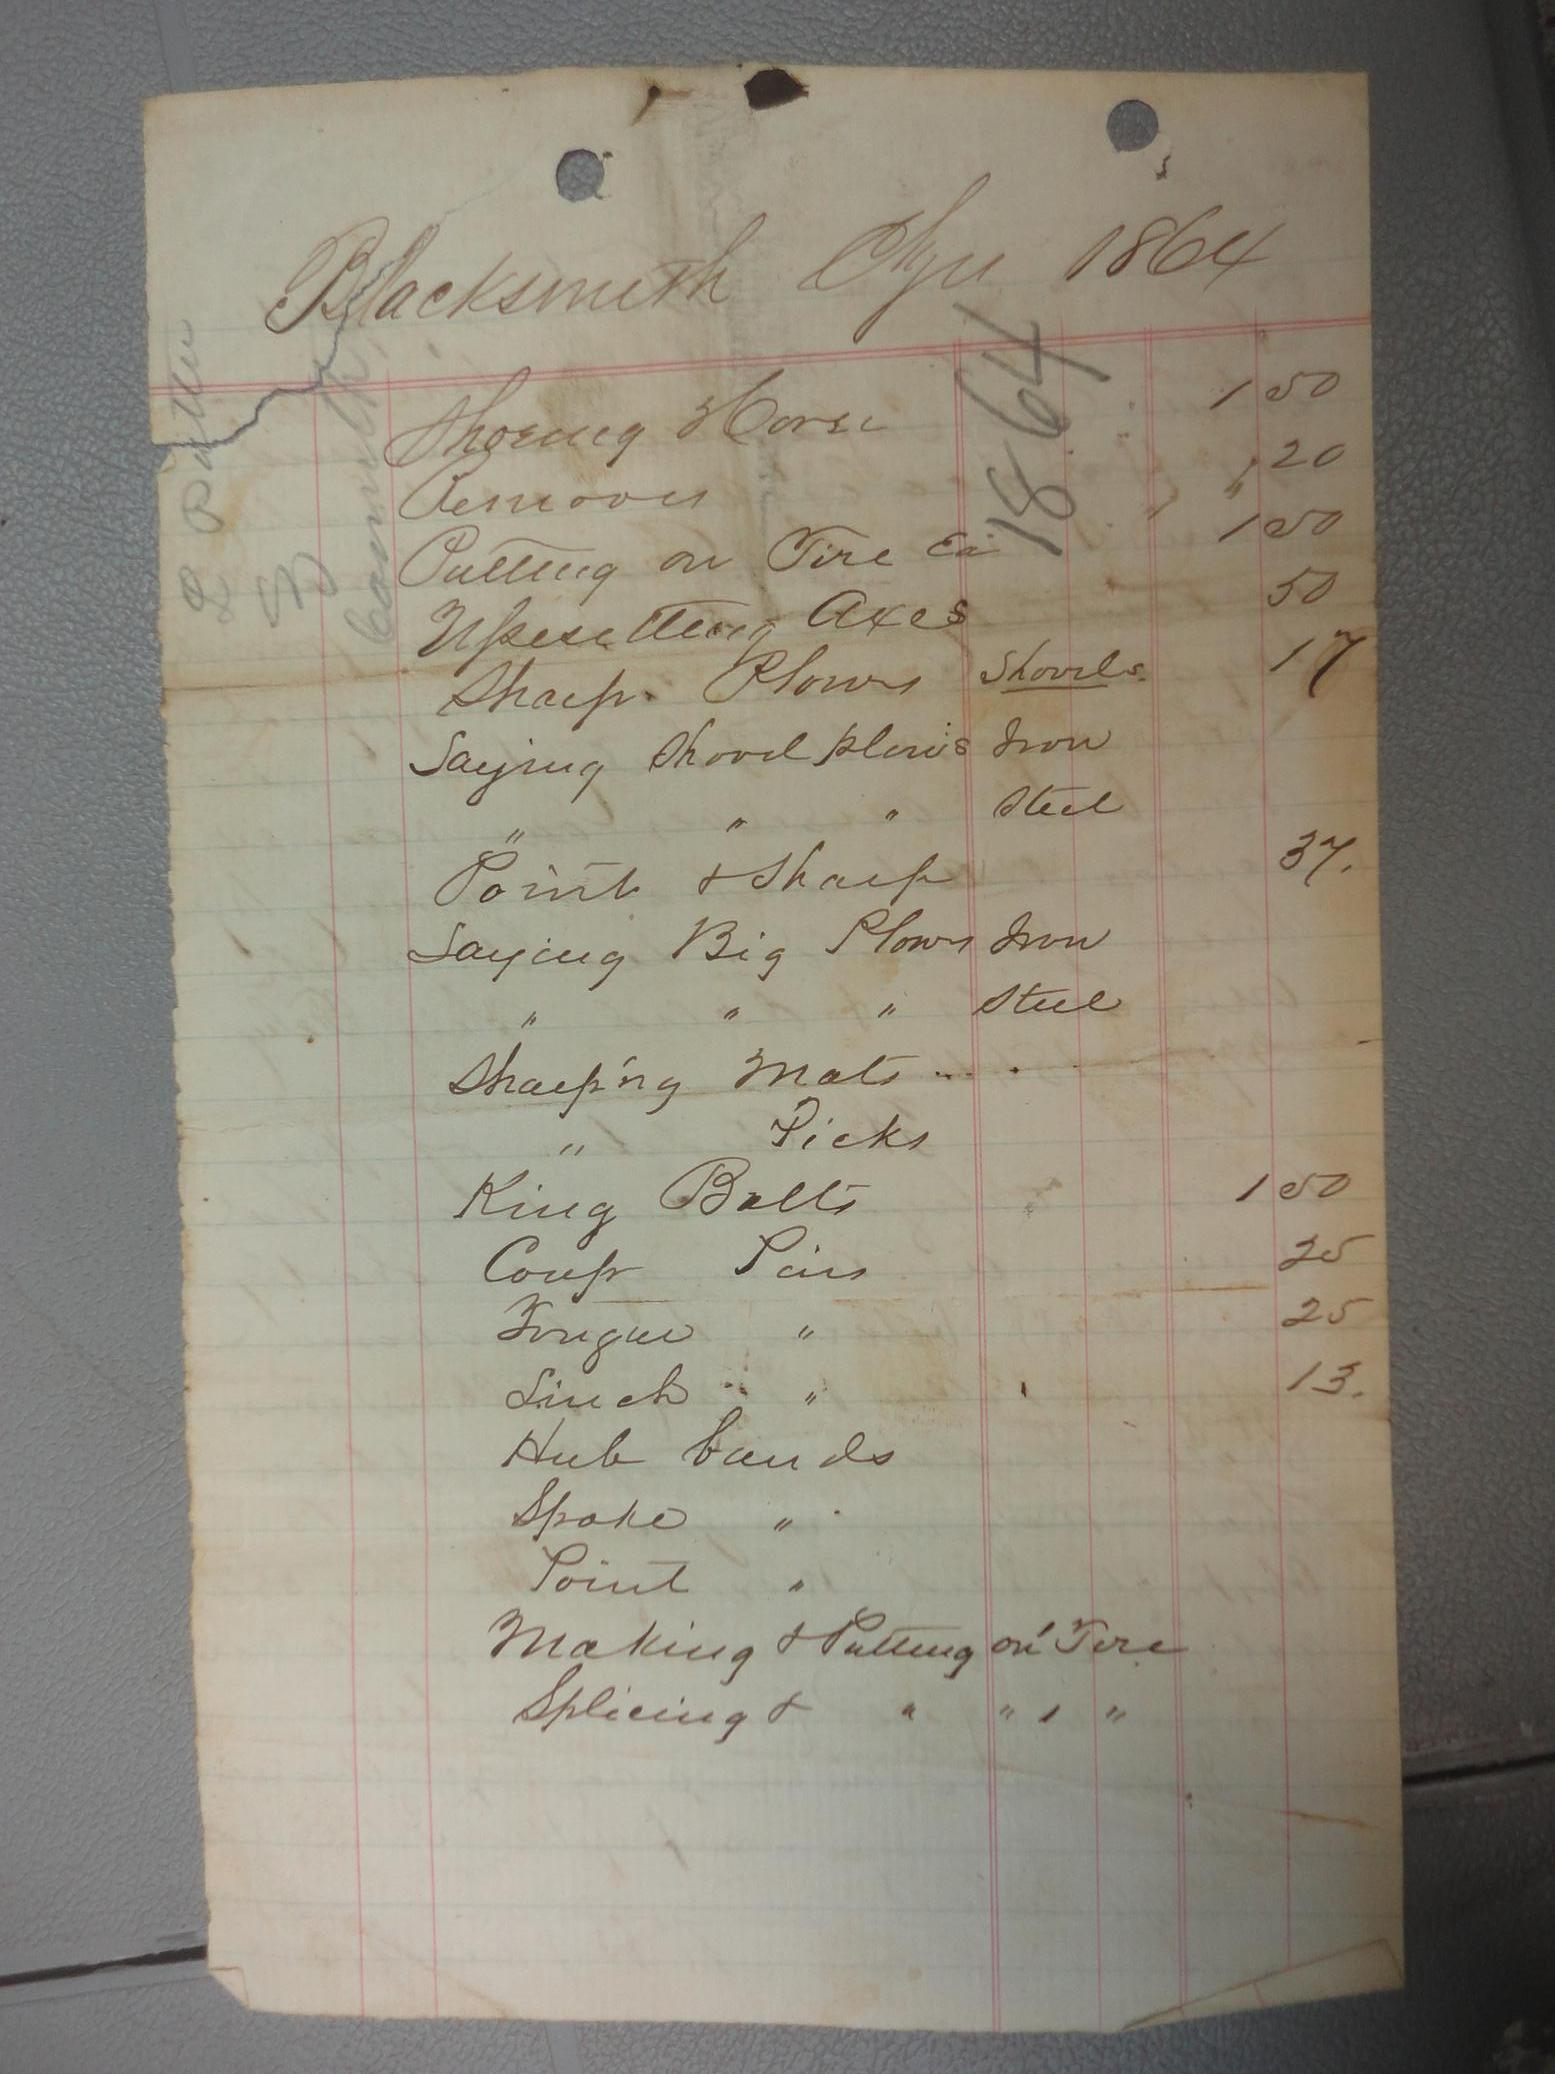 Blacksmith 1864
1864
Shoeing Horse 1 50
Removes " " 20
Putting on Tire Ea 1 50
Upsetting Axes 50
Sharp. Plows Shovels. 17
Laying Shovel plows Iron
" " " Steel
Point & Sharp 37.
Laying Big Plows Iron
" " " Steel
Sharp'ng Mats
" Picks
King Bolts 1 50
Coup Pins 25
Tongue " 25
Linch " 13.
Hub bands
Spoke "
Point "
Making & Putting on Tire
Splicing & " " "